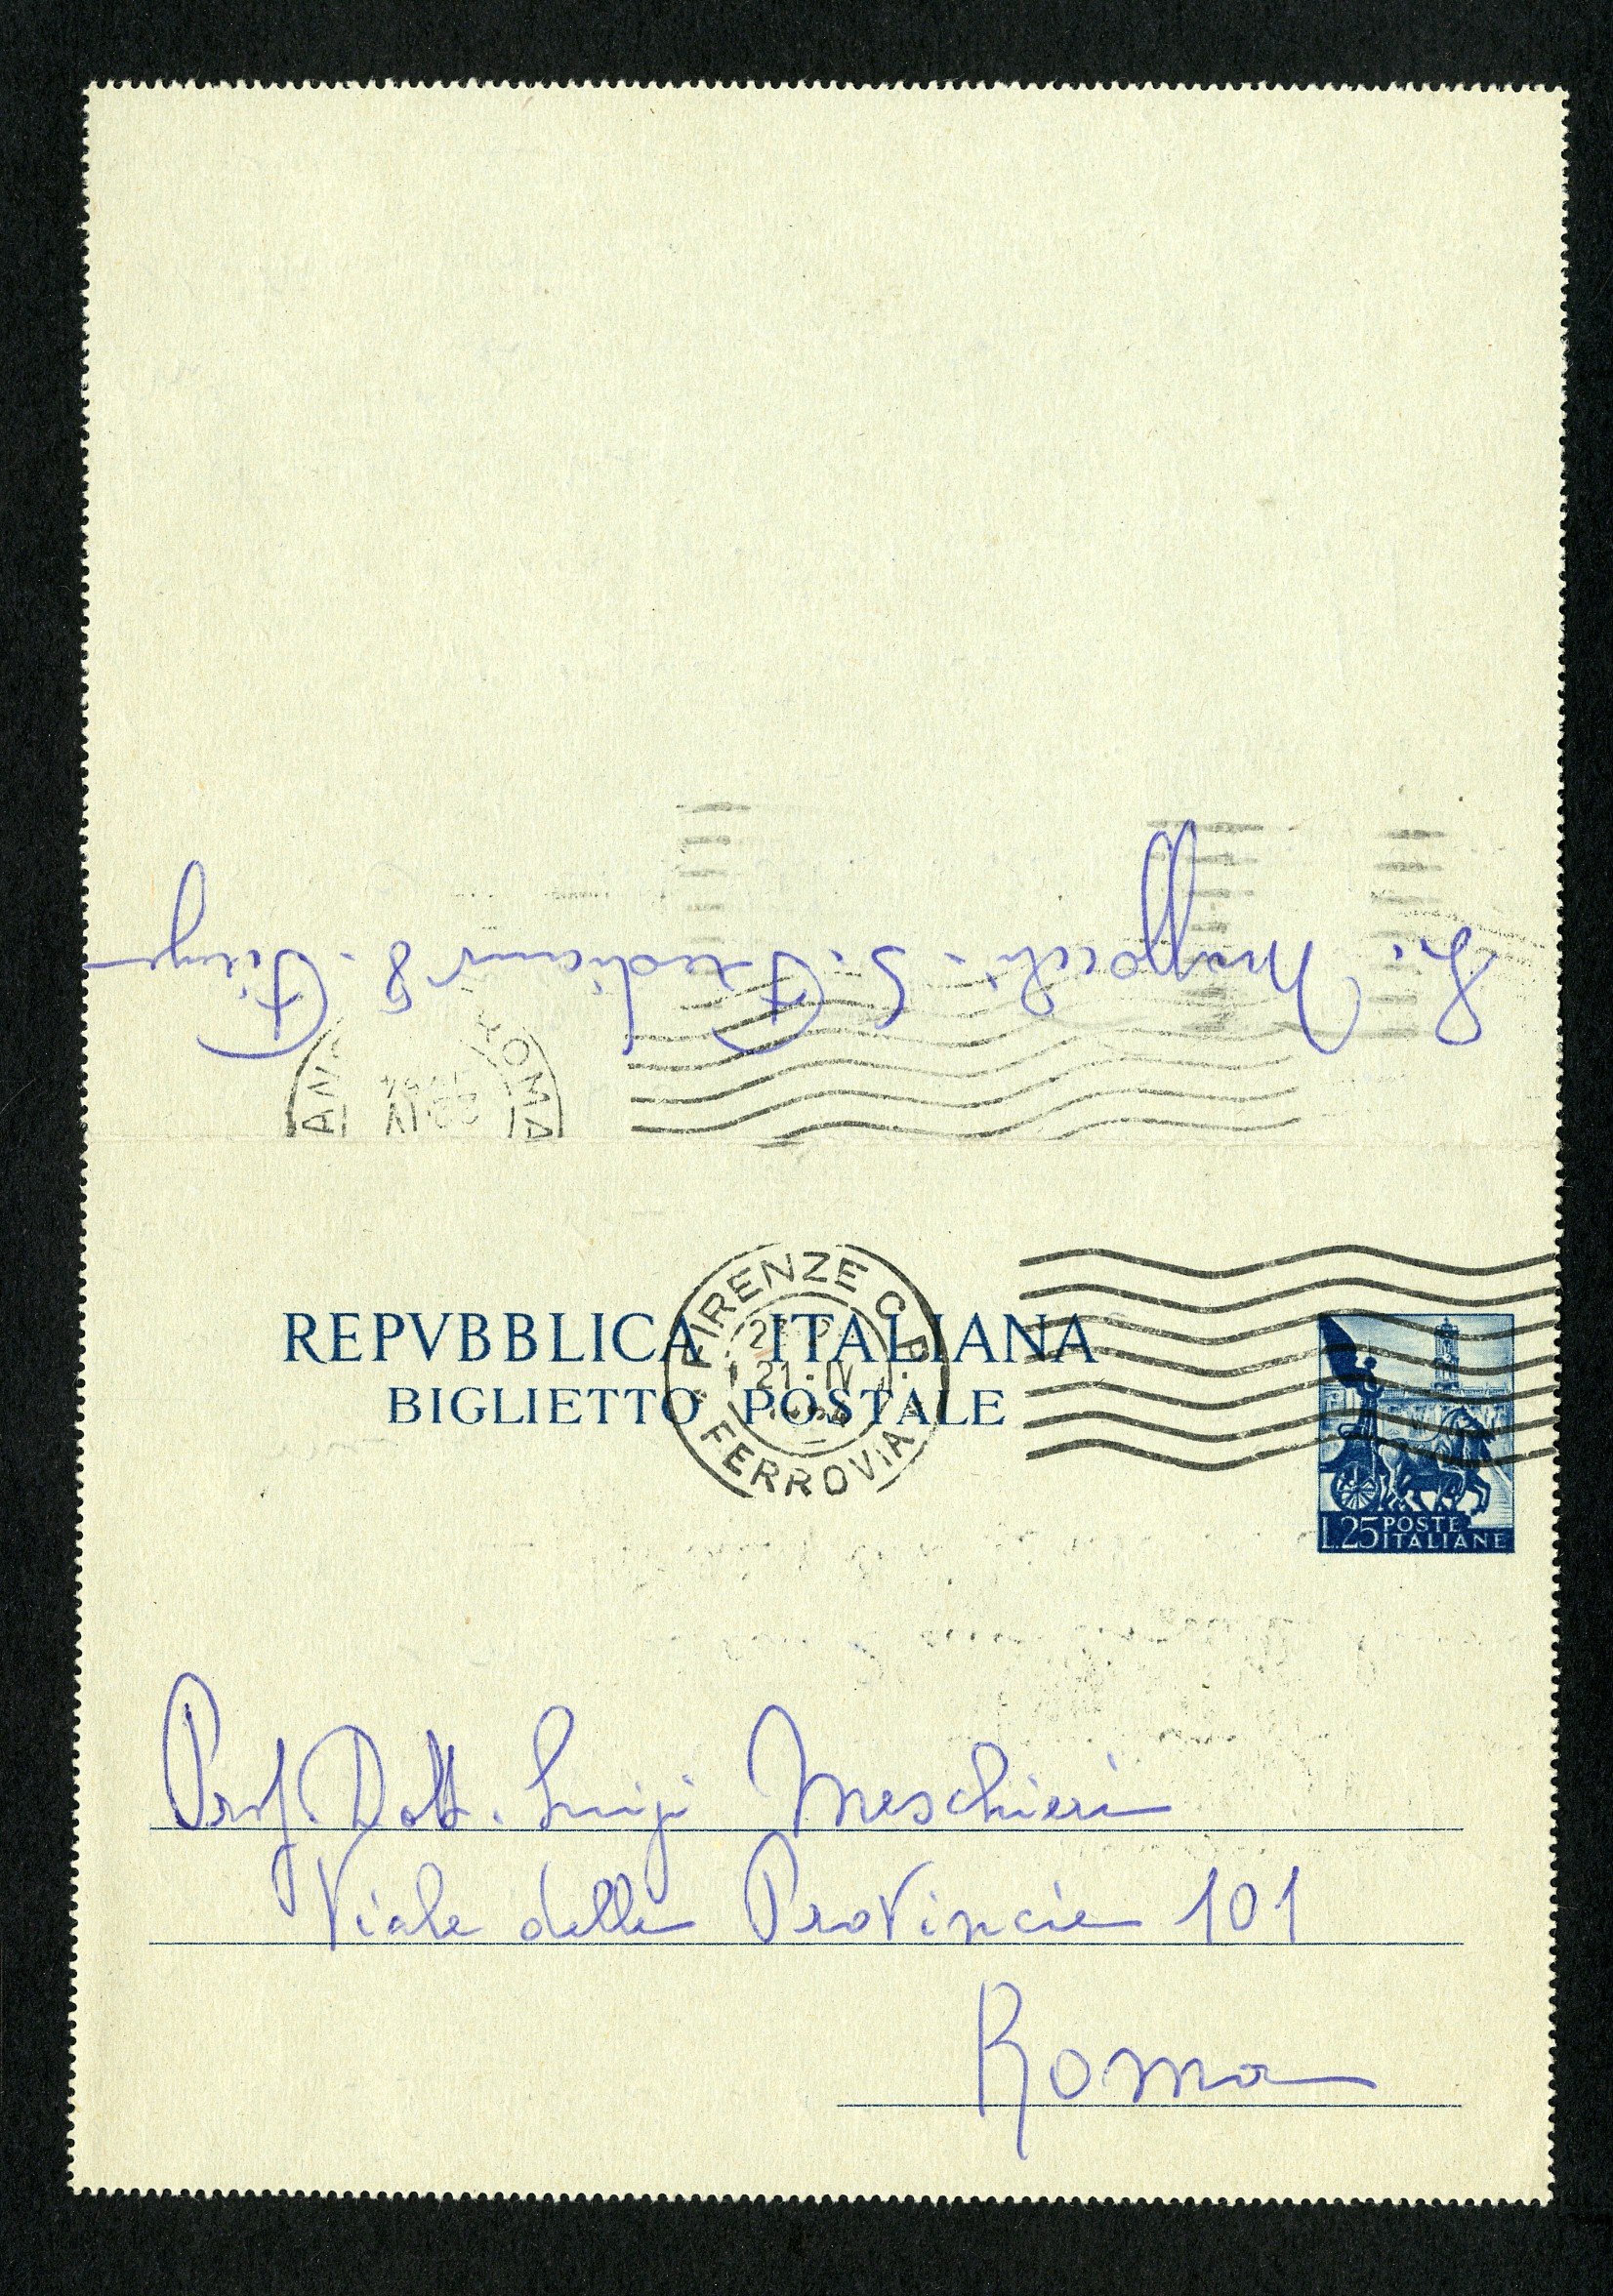 S. Frediano 8. Firenze
ROMA
FIRENZE C.P.
21-IV
FERROVIA
REPVBBLICA ITALIANA
BIGLIETTO POSTALE
L.25 POSTE ITALIANE
Prof. Dott. Luigi Meschieri
Viale delle Provincie 101
Roma